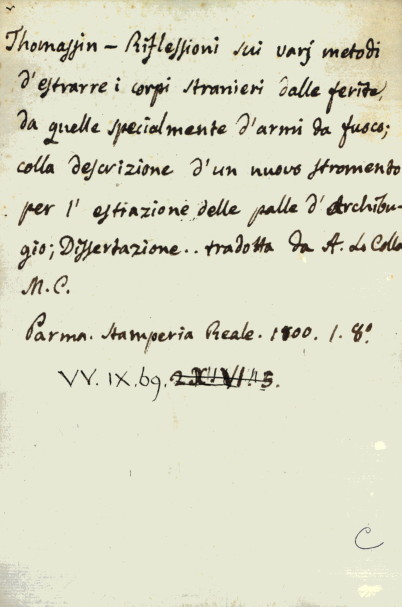 Thomassin – Riflessioni sui varj metodi
d'estrarre i corpi stranieri dalle ferite,
da quelle specialmente d'armi da fuoco;
colla descrizione d'un nuovo stromento
per l' estrazione delle palle d' Archibu-
gio; Dissertazione.. tradotta da A. Lo Colla
M.C.
Parma. Stamperia Reale. 1800. 1. 8º.
VV. IX. 69.
C